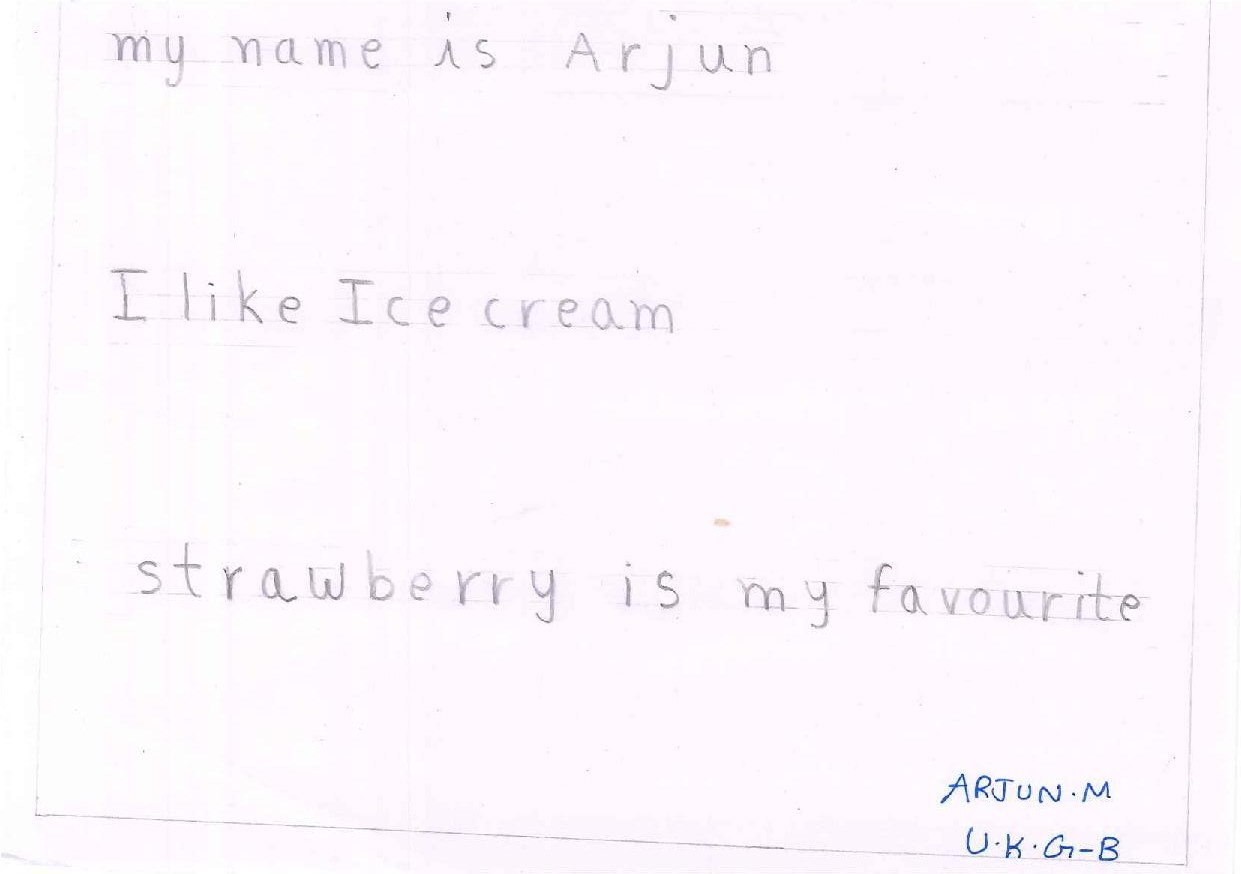 my name is Arjun
I like Ice cream
strawberry is my favourite
ARJUN.M
U.K.G-B